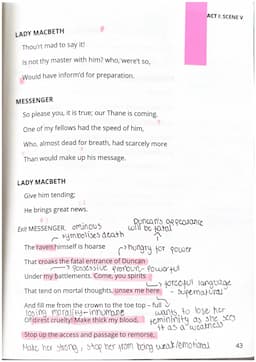 ACT I: SCENE V
LADY MACBETH
Thou'rt mad to say it!
Is not thy master with him? who, were't so,
Would have inform'd for preparation.
MESSENGER
So please you, it is true; our Thane is coming.
One of my fellows had the speed of him,
Who, almost dead for breath, had scarcely more
Than would make up his message.
LADY MACBETH
Give him tending;
He brings great news.
Duncan's appearance
Exit MESSENGER. ominous will be fatal
symbolises death
The raven himself is hoarse hungry for power
That croaks the fatal entrance of Duncan
possessive pronoun - powerful
Under my battlements. Come, you spirits
forceful language
That tend on mortal thoughts, unsex me here, - supernatural
And fill me from the crown to the toe top-full
losing morality - inhumane wants to lose her
Of direst cruelty! Make thick my blood, femininity as she sees
it as a weakness
Stop up the access and passage to remorse,
Make her strong, stop her from being weak/emotional
43